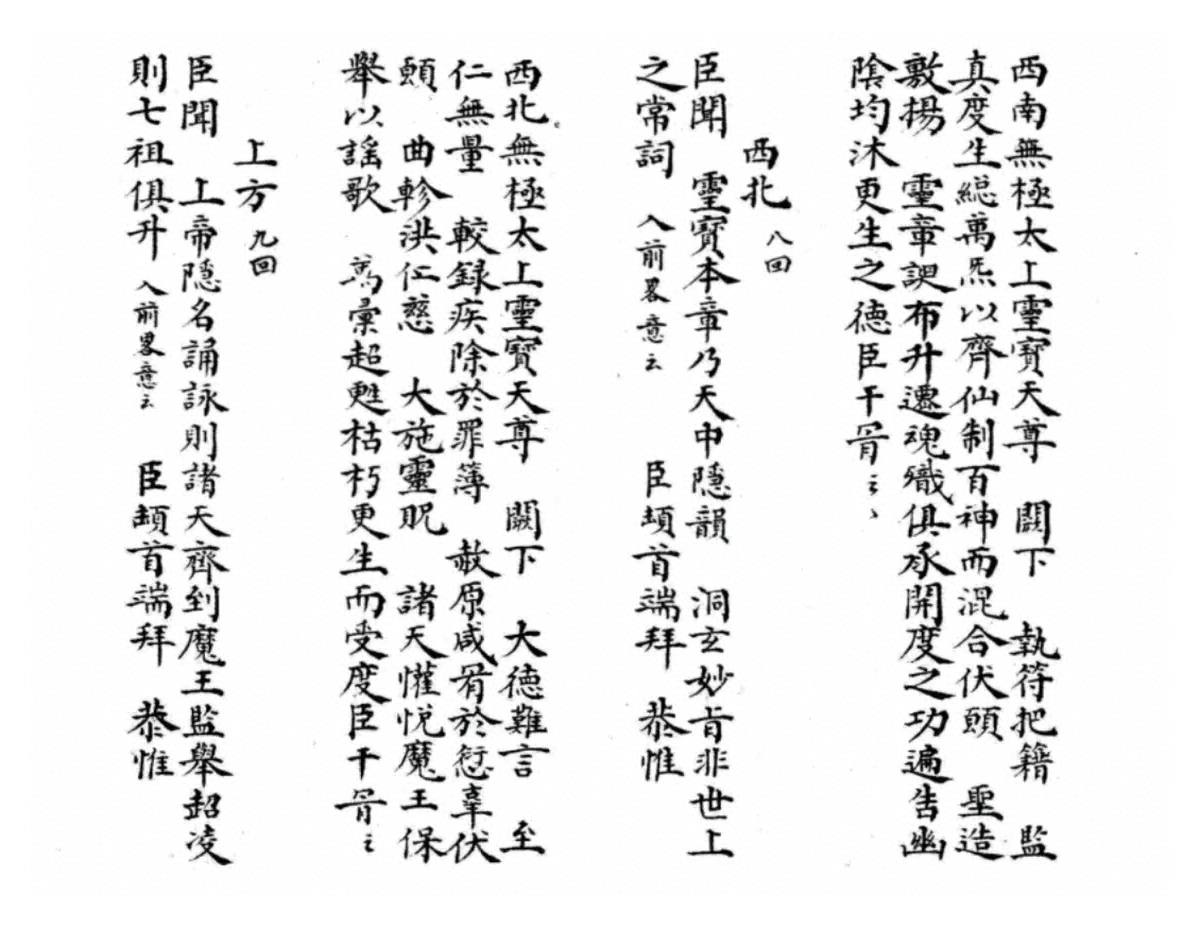 西南無極太上靈寶天尊　闕下　執符把籙　監
真度生總萬炁以齊仙制百神而混合伏願　聖造
敷揚　靈章誕布升遷魂殱俱承開度之功遍告幽
陰均沐更生之德臣干冒云、
西北　八回
臣聞　靈寶本章乃天中隱韻　洞玄妙旨非世上
之常詞　入前畧意云　臣頓首端拜　恭惟
西北無極太上靈寶天尊　闕下　大德難言　至
仁無量　較録疾除於罪簿　赦原咸宥於愆辜伏
願　曲軫洪仁慈　大施靈貺　諸天懽悅魔王保
舉以謡歌　萬彙超甦枯朽更生而受度臣干冒云
上方　九回
臣聞　上帝隱名誦詠則諸天齊到魔王監舉超凌
則七祖俱升　入前畧意云　臣頓首端拜　恭惟